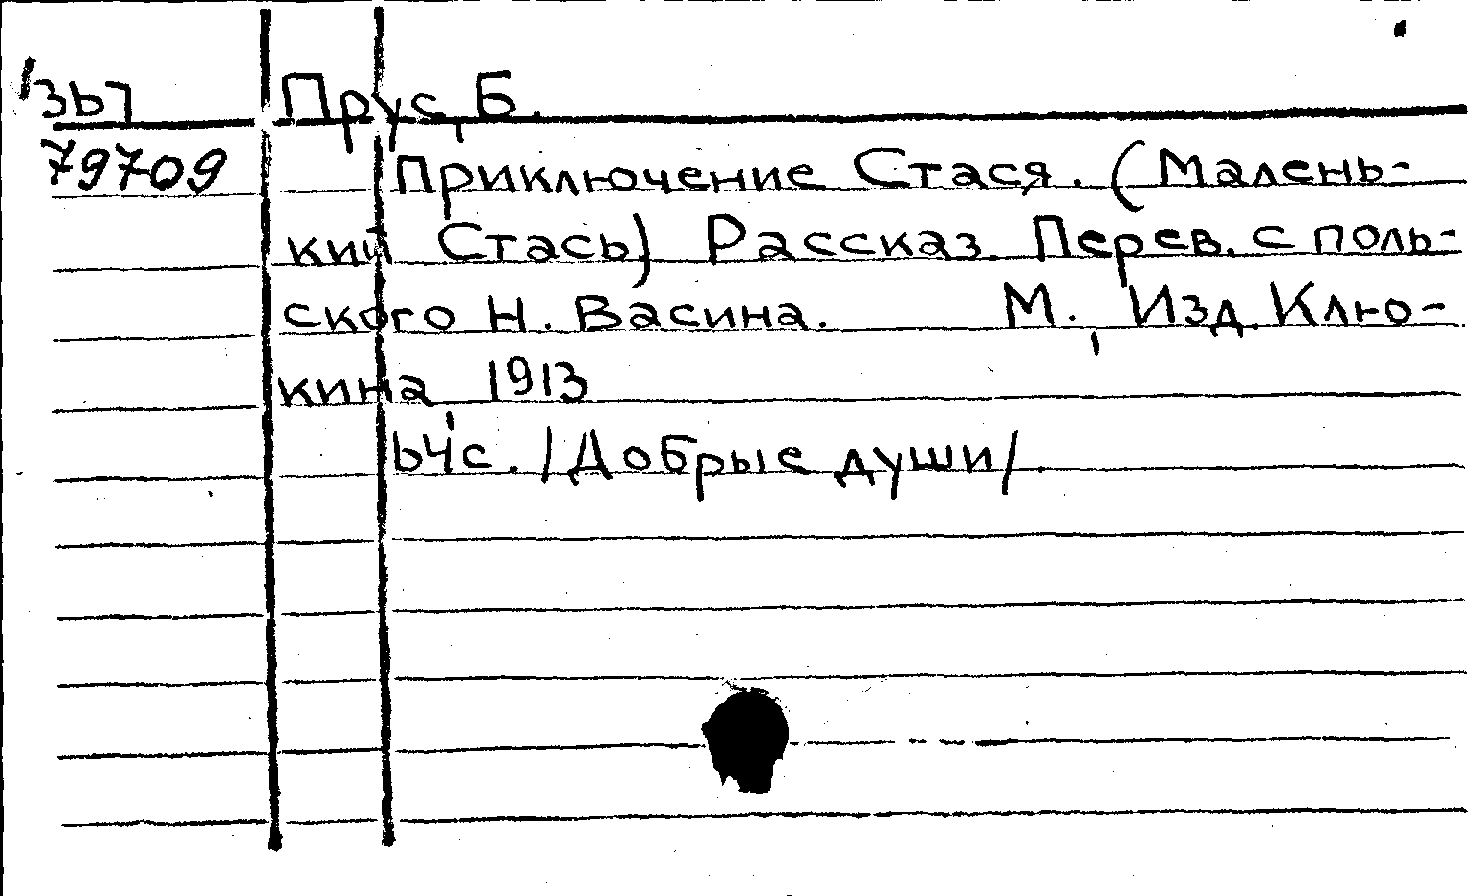 367 Прус, Б.
79709 Приключение Стася. (Малень-
кий Стась) Рассказ. Перев. с поль-
ского Н. Васина. М., Изд. Клю-
кина, 1913
64 с. /Добрые души/.